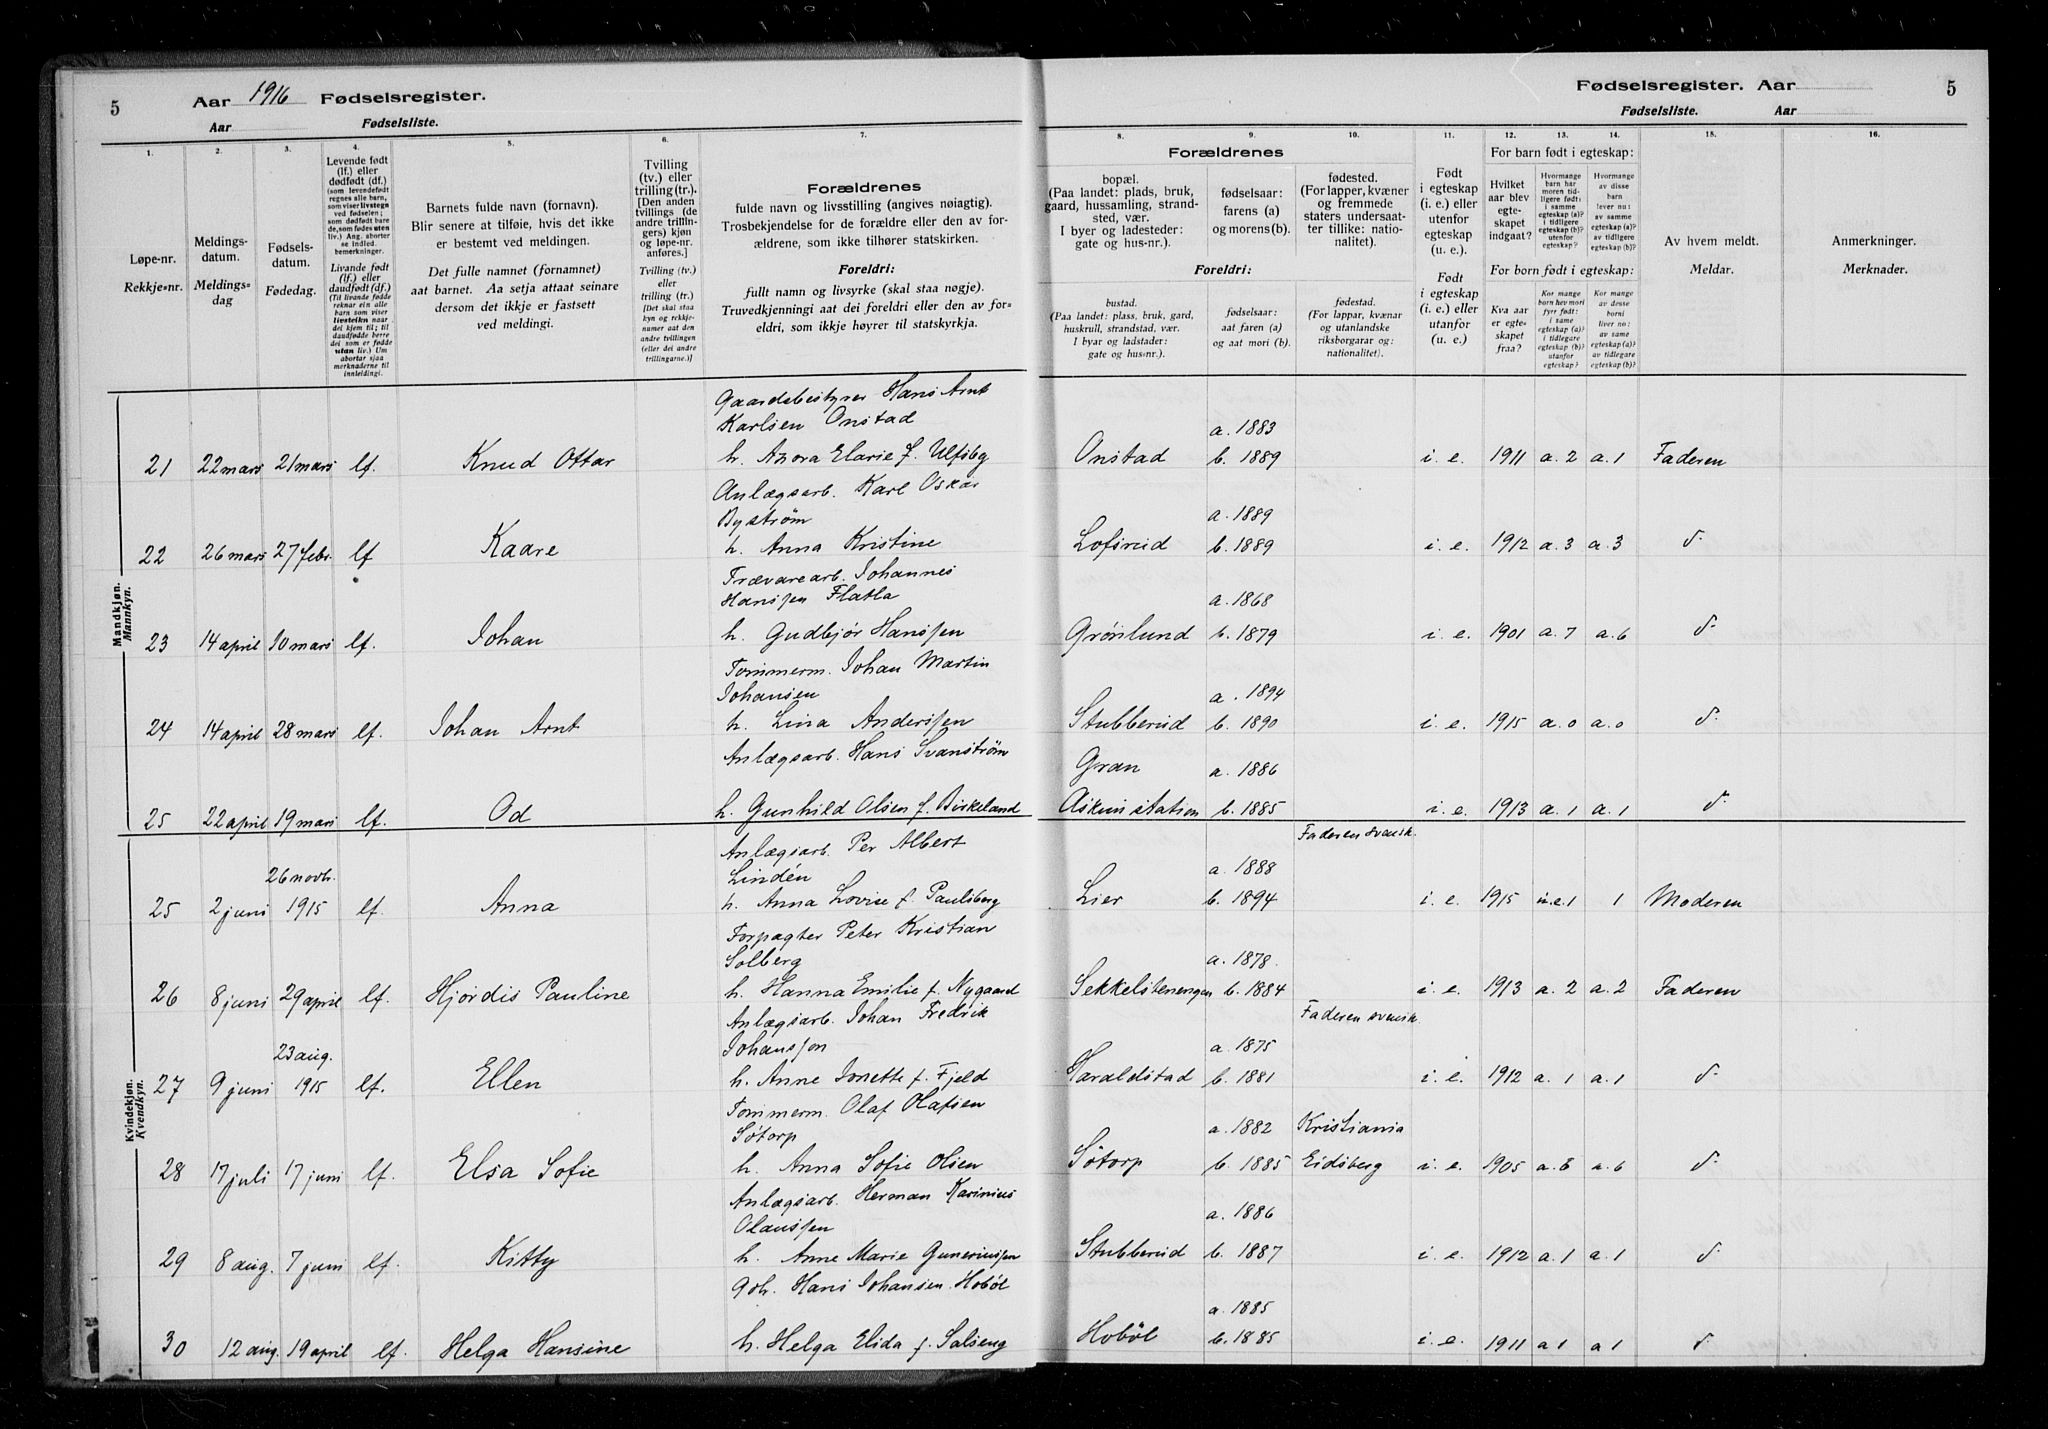 5 Aar 1916 Fødselsregister.
Aar Fødselsliste.
Fødselsregister. Aar 5
Fødselsliste. Aar
1. 2. 3. 4. 5. 6. 7. 8. 9. 10. 11. 12. 13. 14. 15. 16.
Løpe-nr.
Rekkje-nr.
Meldings-
datum.
Meldings-
dag
Fødsels-
datum.
Fødedag.
Levende født
(lf.) eller
dødfødt (df.)
(som levendefødt
regnes alle barn,
som viser livstegn
ved fødselen;
som dødfødt bare
de, som fødes uten
liv.) Ang. aborter
se indled.
bemerkninger.
Livande født
(lf.) eller
daudfødt (df.)
(Til livande fødde
reknar ein alle
barn som viser
livsteikn naar
dei kjem til; til
daudfødde berre
dei som er fødde
utan liv.) Um
abortar sjaa
merknaderne til
innleidingi.
Barnets fulde navn (fornavn).
Blir senere at tilføie, hvis det ikke
er bestemt ved meldingen.
Det fulle namnet (fornamnet)
aat barnet. Aa setja attaat seinare
dersom det ikkje er fastsett
ved meldingi.
Tvilling
(tv.) eller
trilling (tr.).
[Den anden
tvillings (de
andre trillin-
gers) kjøn
og løpe-nr.
anføres.]
Tvilling (tv.)
eller
trilling (tr.)
[Det skal staa
kyn og rekkje-
numer aat den
andre tvillingen
(eller dei andre
trillingarne.)]
Forældrenes
fulde navn og livsstilling (angives nøiagtig).
Trosbekjendelse for de forældre eller den av for-
ældrene, som ikke tilhører statskirken.
Foreldri:
fullt namn og livsyrke (skal staa nøgje).
Truvedkjenningi aat dei foreldri eller den av for-
eldri, som ikkje høyrer til statskyrkja.
Forældrenes
bopæl.
(Paa landet: plads, bruk,
gaard, hussamling, strand-
sted, vær.
I byer og ladesteder:
gate og hus-nr.).
fødselsaar:
farens (a)
og morens (b).
fødested.
(For lapper, kvæner
og fremmede
staters undersaat-
ter tillike: natio-
nalitet).
Foreldri:
bustad.
(Paa landet: plass, bruk, gard,
huskrull, strandstad, vær.
I byar og ladstader:
gate og hus-nr.).
fødselsaar:
aat faren (a)
og aat mori (b).
fødestad.
(For lappar, kvænar
og utanlandske
riksborgarar og:
nationalitet).
Født
i egteskap
(i. e.) eller
utenfor
egteskap
(u. e.).
Født
i egteskap
(i. e.) eller
utanfor
(u. e.).
For barn født i egteskap:
Hvilket
aar blev
egte-
skapet
indgaat?
Hvormange
barn har
moren tid-
ligere født:
i samme
egteskap (a)?
i tidligere
egteskap (b)?
utenfor
egteskap?
Hvormange
av disse
barn
lever nu:
av samme
egteskap (a)?
av tidligere
egteskap (b)?
For born født i egteskap:
Kva aar
er egte-
skapet
fraa?
Kor mange
born hev mori
fyrr født:
i same
egteskap (a)?
i tidlegare
egteskap (b)?
utanfor
egteskap?
Kor mange
av desse
borni
liver no:
av same
egteskap (a)?
av tidlegare
egteskap (b)?
Av hvem meldt.
Meldar.
Anmerkninger.
Merknader.
Mandkjøn.
Mannkyn.
Gaardsbestyrer Hans Arnt
Karlsen Onstad a. 1883
21 22 mars 21 mars lf. Knud Ottar h. Azora Elarie f. Ulfsby Onstad b. 1889 i. e. 1911 a. 2 a. 1 Faderen
Anlægsarb. Karl Oskar
Byström a. 1889
22 26 mars 27 febr. lf Kaare h. Anna Kristine Lofsrud b. 1889 i. e. 1912 a. 3 a. 3 d.
Trævarearb. Johannes
Hanssen Flatla a. 1868
23 14 april 10 mars lf. Johan h. Gudbjør Hanssen Grønlund b. 1879 i. e. 1901 a. 7 a. 6 d.
Tømmerm. Johan Martin
Johansen a. 1894
24 14 april 28 mars lf. Johan Arnt h. Lina Anderssen Stubberud b. 1890 i. e. 1915 a. 0 a. 0 d.
Anlægsarb. Hans Svanstrøm Gran a. 1886
25 22 april 19 mars lf. Od h. Gunhild Olsen f. Birkeland Askim station b. 1885 i. e. 1913 a. 1 a. 1 d.
Kvindekjøn.
Kvendkyn.
Anlægsarb. Per Albert Faderen svensk.
26 novbr. Lindén a. 1888
25 2 juni 1915 lf. Anna h. Anna Lovise f. Paulsberg Lier b. 1894 i. e. 1915 u.e. 1 1 Moderen
Forpagter Peter Kristian
Solberg a. 1878.
26 8 juni 29 april lf. Hjørdis Pauline h. Hanna Emilie f. Nygaard Sekkelstenengen b. 1884 i. e. 1913 a. 2 a. 2 Faderen
Anlægsarb. Johan Fredrik Faderen svensk.
23 aug. Johanssen a. 1875
27 9 juni 1915 lf. Ellen h. Anne Jonette f. Fjeld Haraldstad b. 1881 i. e. 1912 a. 1 a. 1 d.
Tømmerm. Olaf Olafsen
Søtorp a. 1882 Kristiania
28 17 juli 17 juni lf. Elsa Sofie h. Anna Sofie Olsen Søtorp b. 1885 Eidsberg i. e. 1905 a. 6 a. 6 d.
Anlægsarb. Herman Karinius
Olaussen a. 1886
29 8 aug. 7 juni lf. Kitty h. Anne Marie Guneriussen Stubberud b. 1887 i. e. 1912 a. 1 a. 1 d.
Gbr. Hans Johansen Hobøl a. 1885
30 12 aug. 19 april lf. Helga Hansine h. Helga Elida f. Salseng Hobøl b. 1885 i. e. 1911 a 1 a 1 d.